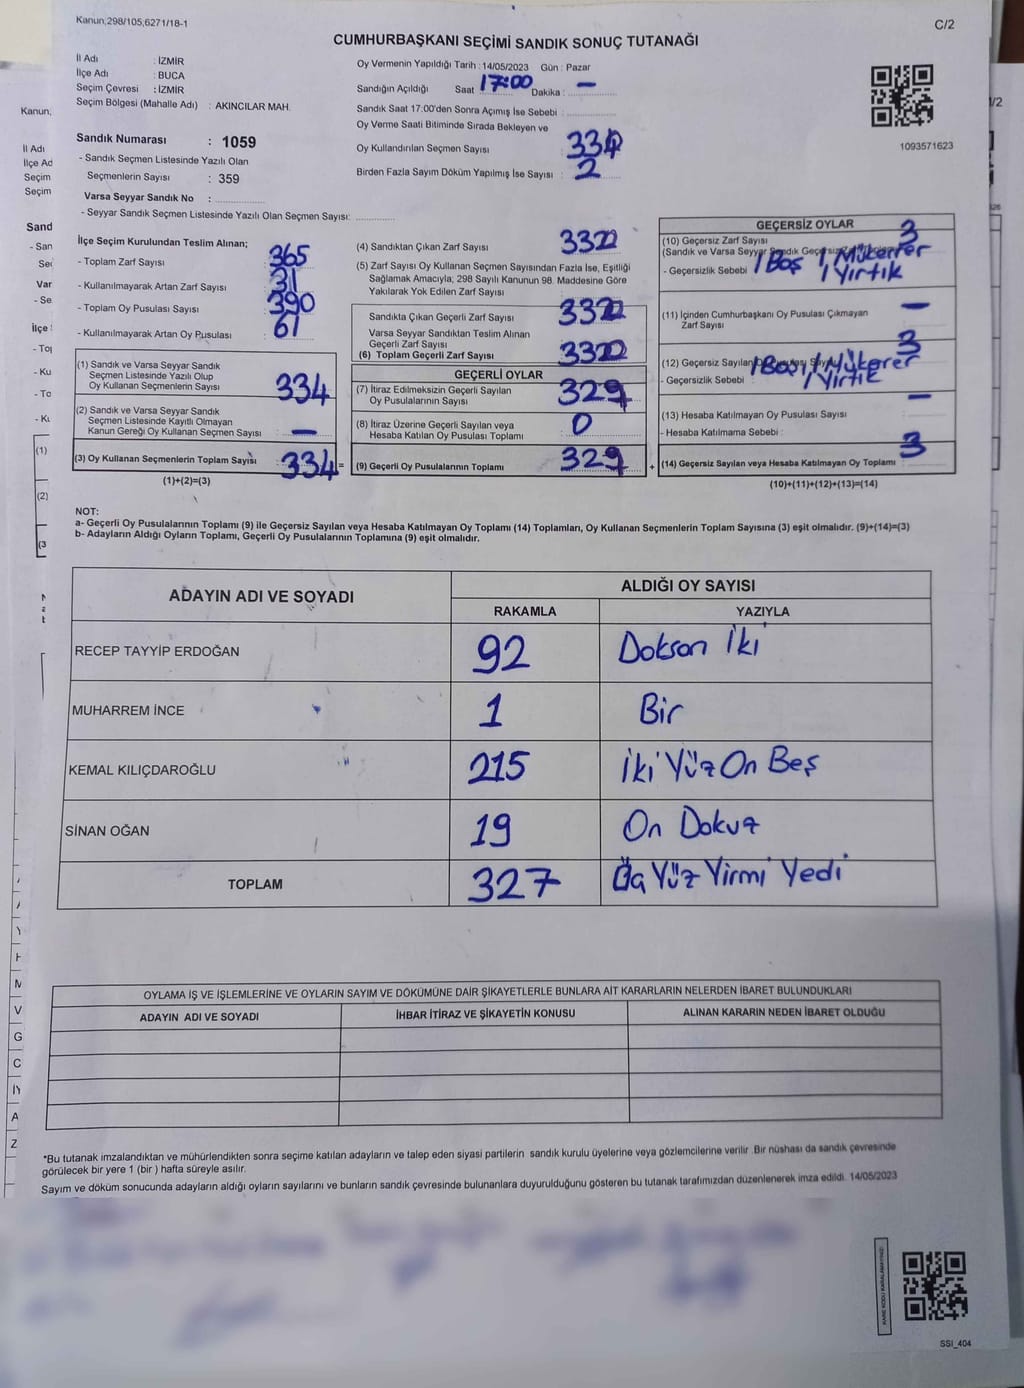 Kanun,298/105,6271/18-1
C/2
CUMHURBAŞKANI SEÇİMİ SANDIK SONUÇ TUTANAĞI
İl Adı : İZMİR
İlçe Adı : BUCA
Seçim Çevresi : İZMİR
Seçim Bölgesi (Mahalle Adı) : AKINCILAR MAH.
Sandık Numarası : 1059
- Sandık Seçmen Listesinde Yazılı Olan
Seçmenlerin Sayısı : 359
Varsa Seyyar Sandık No :
- Seyyar Sandık Seçmen Listesinde Yazılı Olan Seçmen Sayısı:
Oy Vermenin Yapıldığı Tarih : 14/05/2023 Gün : Pazar
Sandığın Açıldığı Saat 17:00 Dakika : —
Sandık Saat 17:00'den Sonra Açımış İse Sebebi :
Oy Verme Saati Bitiminde Sırada Bekleyen ve
Oy Kullandırılan Seçmen Sayısı
Birden Fazla Sayım Döküm Yapılmış İse Sayısı : 2
1093571623
İlçe Seçim Kurulundan Teslim Alınan;
- Toplam Zarf Sayısı : 365
- Kullanılmayarak Artan Zarf Sayısı : 31
- Toplam Oy Pusulası Sayısı : 390
- Kullanılmayarak Artan Oy Pusulası : 61
(1) Sandık ve Varsa Seyyar Sandık
Seçmen Listesinde Yazılı Olup
Oy Kullanan Seçmenlerin Sayısı 334
(2) Sandık ve Varsa Seyyar Sandık
Seçmen Listesinde Kayıtlı Olmayan
Kanun Gereği Oy Kullanan Seçmen Sayısı —
(3) Oy Kullanan Seçmenlerin Toplam Sayısı 334 =
(1)+(2)=(3)
(4) Sandıktan Çıkan Zarf Sayısı
(5) Zarf Sayısı Oy Kullanan Seçmen Sayısından Fazla İse, Eşitliği
Sağlamak Amacıyla; 298 Sayılı Kanunun 98. Maddesine Göre
Yakılarak Yok Edilen Zarf Sayısı
Sandıkta Çıkan Geçerli Zarf Sayısı
Varsa Seyyar Sandıktan Teslim Alınan
Geçerli Zarf Sayısı
(6) Toplam Geçerli Zarf Sayısı
GEÇERLİ OYLAR
(7) İtiraz Edilmeksizin Geçerli Sayılan
Oy Pusulalarının Sayısı 329
(8) İtiraz Üzerine Geçerli Sayılan veya
Hesaba Katılan Oy Pusulası Toplamı 0
(9) Geçerli Oy Pusulalarının Toplamı 329 +
GEÇERSİZ OYLAR
(10) Geçersiz Zarf Sayısı 3
(Sandık ve Varsa Seyyar Sandık
- Geçersizlik Sebebi 1 Boş 1 Mükerrer
1 Yırtık
(11) İçinden Cumhurbaşkanı Oy Pusulası Çıkmayan
Zarf Sayısı —
(12) Geçersiz Sayılan 3
- Geçersizlik Sebebi : 1 Boş 1 Mükerer
1 Yırtık
(13) Hesaba Katılmayan Oy Pusulası Sayısı —
- Hesaba Katılmama Sebebi :
(14) Geçersiz Sayılan veya Hesaba Katılmayan Oy Toplamı 3
(10)+(11)+(12)+(13)=(14)
NOT:
a- Geçerli Oy Pusulalarının Toplamı (9) ile Geçersiz Sayılan veya Hesaba Katılmayan Oy Toplamı (14) Toplamları, Oy Kullanan Seçmenlerin Toplam Sayısına (3) eşit olmalıdır. (9)+(14)=(3)
b- Adayların Aldığı Oyların Toplamı, Geçerli Oy Pusulalarının Toplamına (9) eşit olmalıdır.
ADAYIN ADI VE SOYADI
ALDIĞI OY SAYISI
RAKAMLA YAZIYLA
RECEP TAYYİP ERDOĞAN 92 Doksan İki
MUHARREM İNCE 1 Bir
KEMAL KILIÇDAROĞLU 215 İki Yüz On Beş
SİNAN OĞAN 19 On Dokuz
TOPLAM 327 Üç Yüz Yirmi Yedi
OYLAMA İŞ VE İŞLEMLERİNE VE OYLARIN SAYIM VE DÖKÜMÜNE DAİR ŞİKAYETLERLE BUNLARA AİT KARARLARIN NELERDEN İBARET BULUNDUKLARI
ADAYIN ADI VE SOYADI İHBAR İTİRAZ VE ŞİKAYETİN KONUSU ALINAN KARARIN NEDEN İBARET OLDUĞU
*Bu tutanak imzalandıktan ve mühürlendikten sonra seçime katılan adayların ve talep eden siyasi partilerin sandık kurulu üyelerine veya gözlemcilerine verilir. Bir nüshası da sandık çevresinde
görülecek bir yere 1 (bir ) hafta süreyle asılır.
Sayım ve döküm sonucunda adayların aldığı oyların sayılarını ve bunların sandık çevresinde bulunanlara duyurulduğunu gösteren bu tutanak tarafımızdan düzenlenerek imza edildi. 14/05/2023
SSI_404